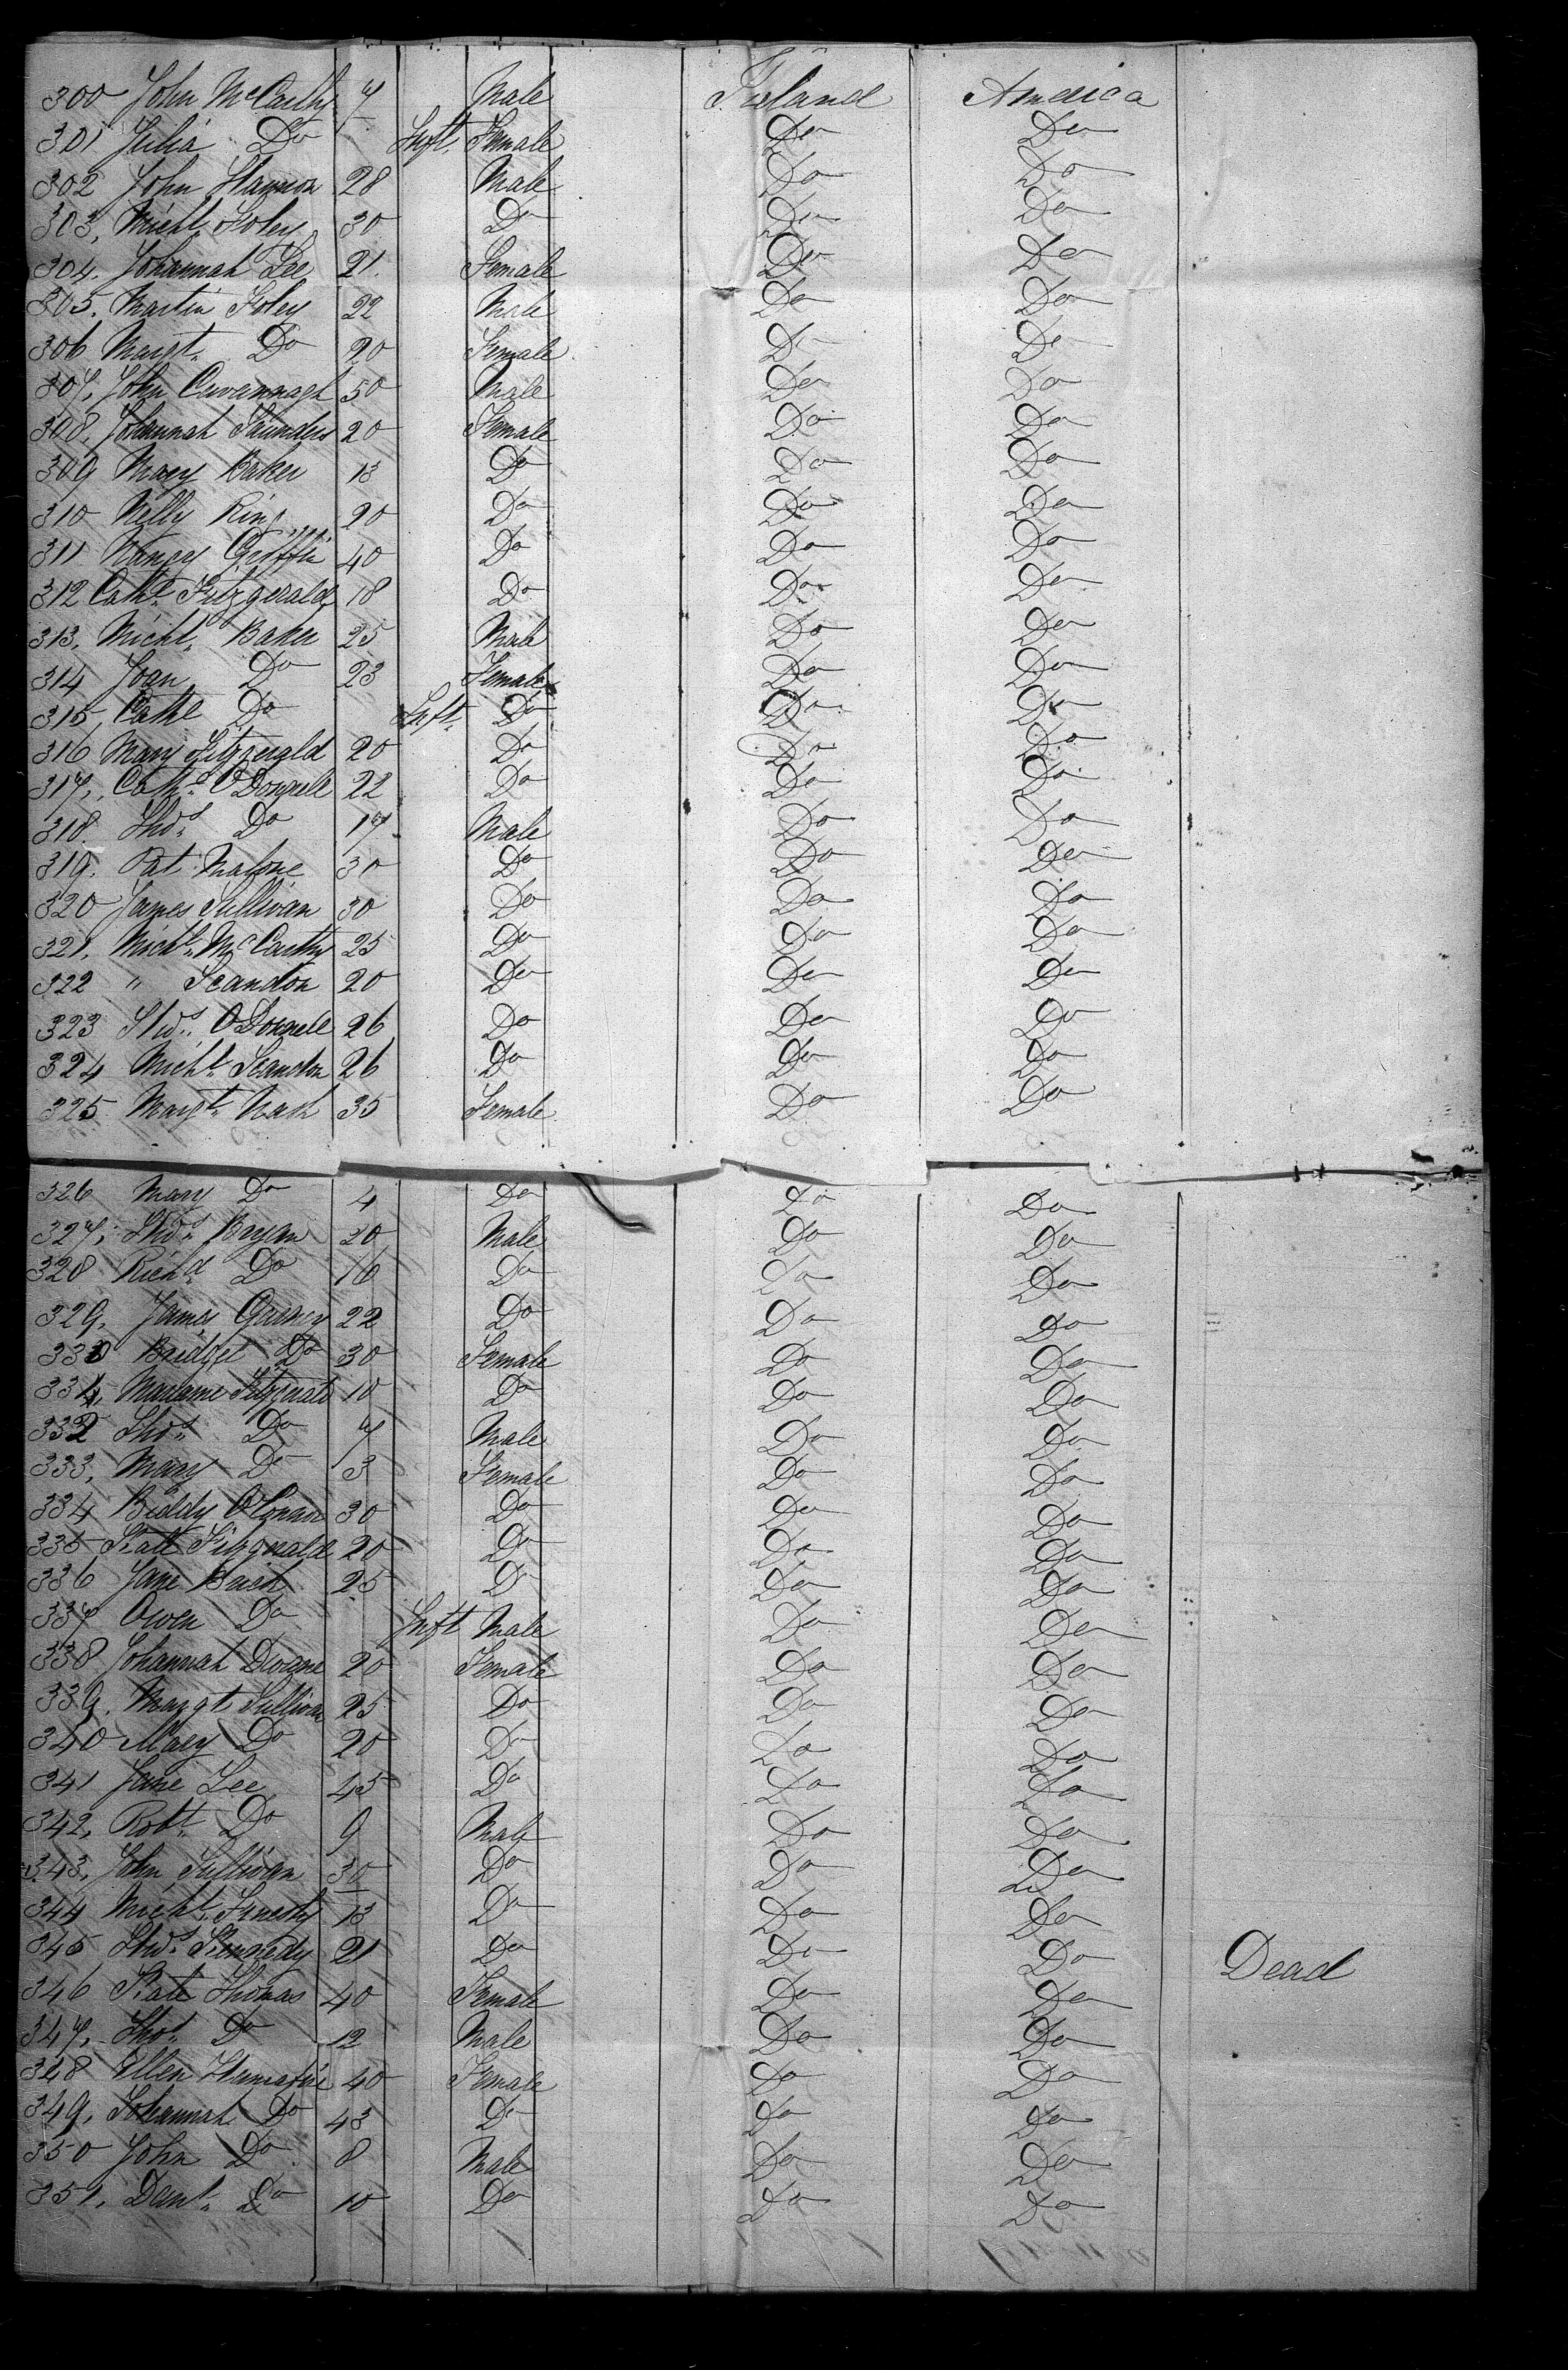 300 John McCarthy 7 Male Ireland America
301 Julia Do Inft. Female Do Do
302 John Hannon 28 Male Do Do
303. Michl. Foley 30 Do Do Do
304. Johannah Lee 21. Female Do Do
305. Martin Foley 22 Male Do Do
306 Margt. Do 20 Female Do Do
307. John Cavannagh 50 Male Do Do
308. Johannah Saunders 20 Female Do Do
309 Mary Baker 13 Do Do Do
310 Nelly Ring 20 Do Do Do
311 Nancy Griffin 40 Do Do Do
312 Cathe. Fitzgerald 18 Do Do Do
313. Michl. Baker 25 Male Do Do
314 Joan Do 23 Female Do Do
315. Cathe Do Inft. Do Do Do
316 Mary Fitzgerald 20 Do Do Do
317. Cathe. ODonnell 22 Do Do Do
318. Thos. Do 17 Male Do Do
319. Pat Malone 30 Do Do Do
320 James Sullivan 30 Do Do Do
321. Michl. McCarthy 25 Do Do Do
322 " Scandon 20 Do Do Do
323 Thos. ODonnell 26 Do Do Do
324 Michl. Scandon 26 Do Do Do
325 Margt. Nash 35 Female Do Do
326 Mary Do 4 Do Do Do
327. Thos. Bryan 20 Male Do Do
328 Richd. Do 16 Do Do Do
329. James 22 Do Do Do
330 Bridget Do 30 Female Do Do
331. Fitzgerald 10 Do Do Do
332 Thos. Do 7 Male Do Do
333. Mary Do 3 Female Do Do
334 Biddy OConnor 30 Do Do Do
335 Kate Fitzgerald 20 Do Do Do
336 Jane 25 Do Do Do
337 Owen Do Inft Male Do Do
338 Johannah Dwane 20 Female Do Do
339. Margt Sullivan 25 Do Do Do
340 Mary Do 20 Do Do Do
341 Jane Lee 45 Do Do Do
342. Robt. Do 9 Male Do Do
343. John Sullivan 30 Do Do Do
344 Michl. 13 Do Do Do
345 Thos. Kennedy 21 Do Do Do Dead
346 Kate Thomas 40 Female Do Do
347. Thos. Do 12 Male Do Do
348 Ellen 40 Female Do Do
349. Johannah Do 43 Do Do Do
350 John Do 8 Male Do Do
351. Danl. Do 10 Do Do Do